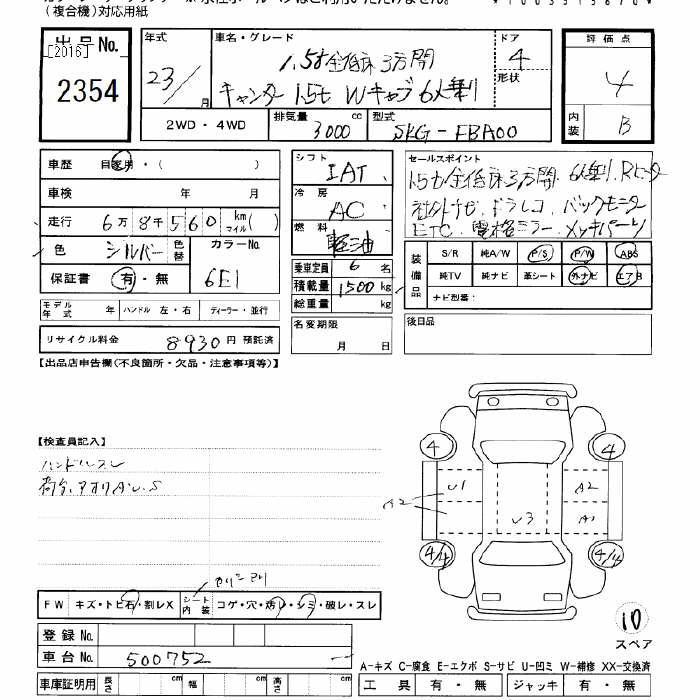 (複合機)対応用紙
出品No.
[2016]
2354
年式
23/
月
車名・グレード
1.5t全低床3方開
キャンター 1.5t Wキャブ 6人乗り
ドア
4
形状
評価点
4
内装
B
2WD・4WD
排気量
3000
cc
型式
SKG-FBA00
車歴 自家用・( )
車検 年 月
走行 6万8千560 km マイル( )
色 シルバー 色替
カラーNo.
6E1
保証書 有・無
モデル年式 年 ハンドル 左・右 ディーラー・並行
リサイクル料金 8930円 預託済
シフト
IAT
冷房
AC
燃料
軽油
乗車定員 6名
積載量 1500kg
総重量 kg
名変期限
月 日
セールスポイント
1.5t全低床3方開 6人乗り.Rヒーター
社外ナビ ドラレコ バックモニター
ETC 電格ミラー メッキパーツ
装備品
S/R 純A/W P/S P/W ABS
純TV 純ナビ 革シート 外ナビ エアB
ナビ型番:
後日品
【出品店申告欄(不良箇所・欠品・注意事項等)】
【検査員記入】
ハンドルスレ
荷台.アオリA.U.S
4
4
U1
A2
A2
U3
A1
4/4
4/4
10
スペア
FW キズ・トビ石・割レX シート内装 コゲ・穴・汚レ・シミ・破レ・スレ
登録No.
車台No. 500752
車庫証明用 長さ cm 幅 cm 高さ cm
A-キズ C-腐食 E-エクボ S-サビ U-凹ミ W-補修 XX-交換済
工具 有・無 ジャッキ 有・無